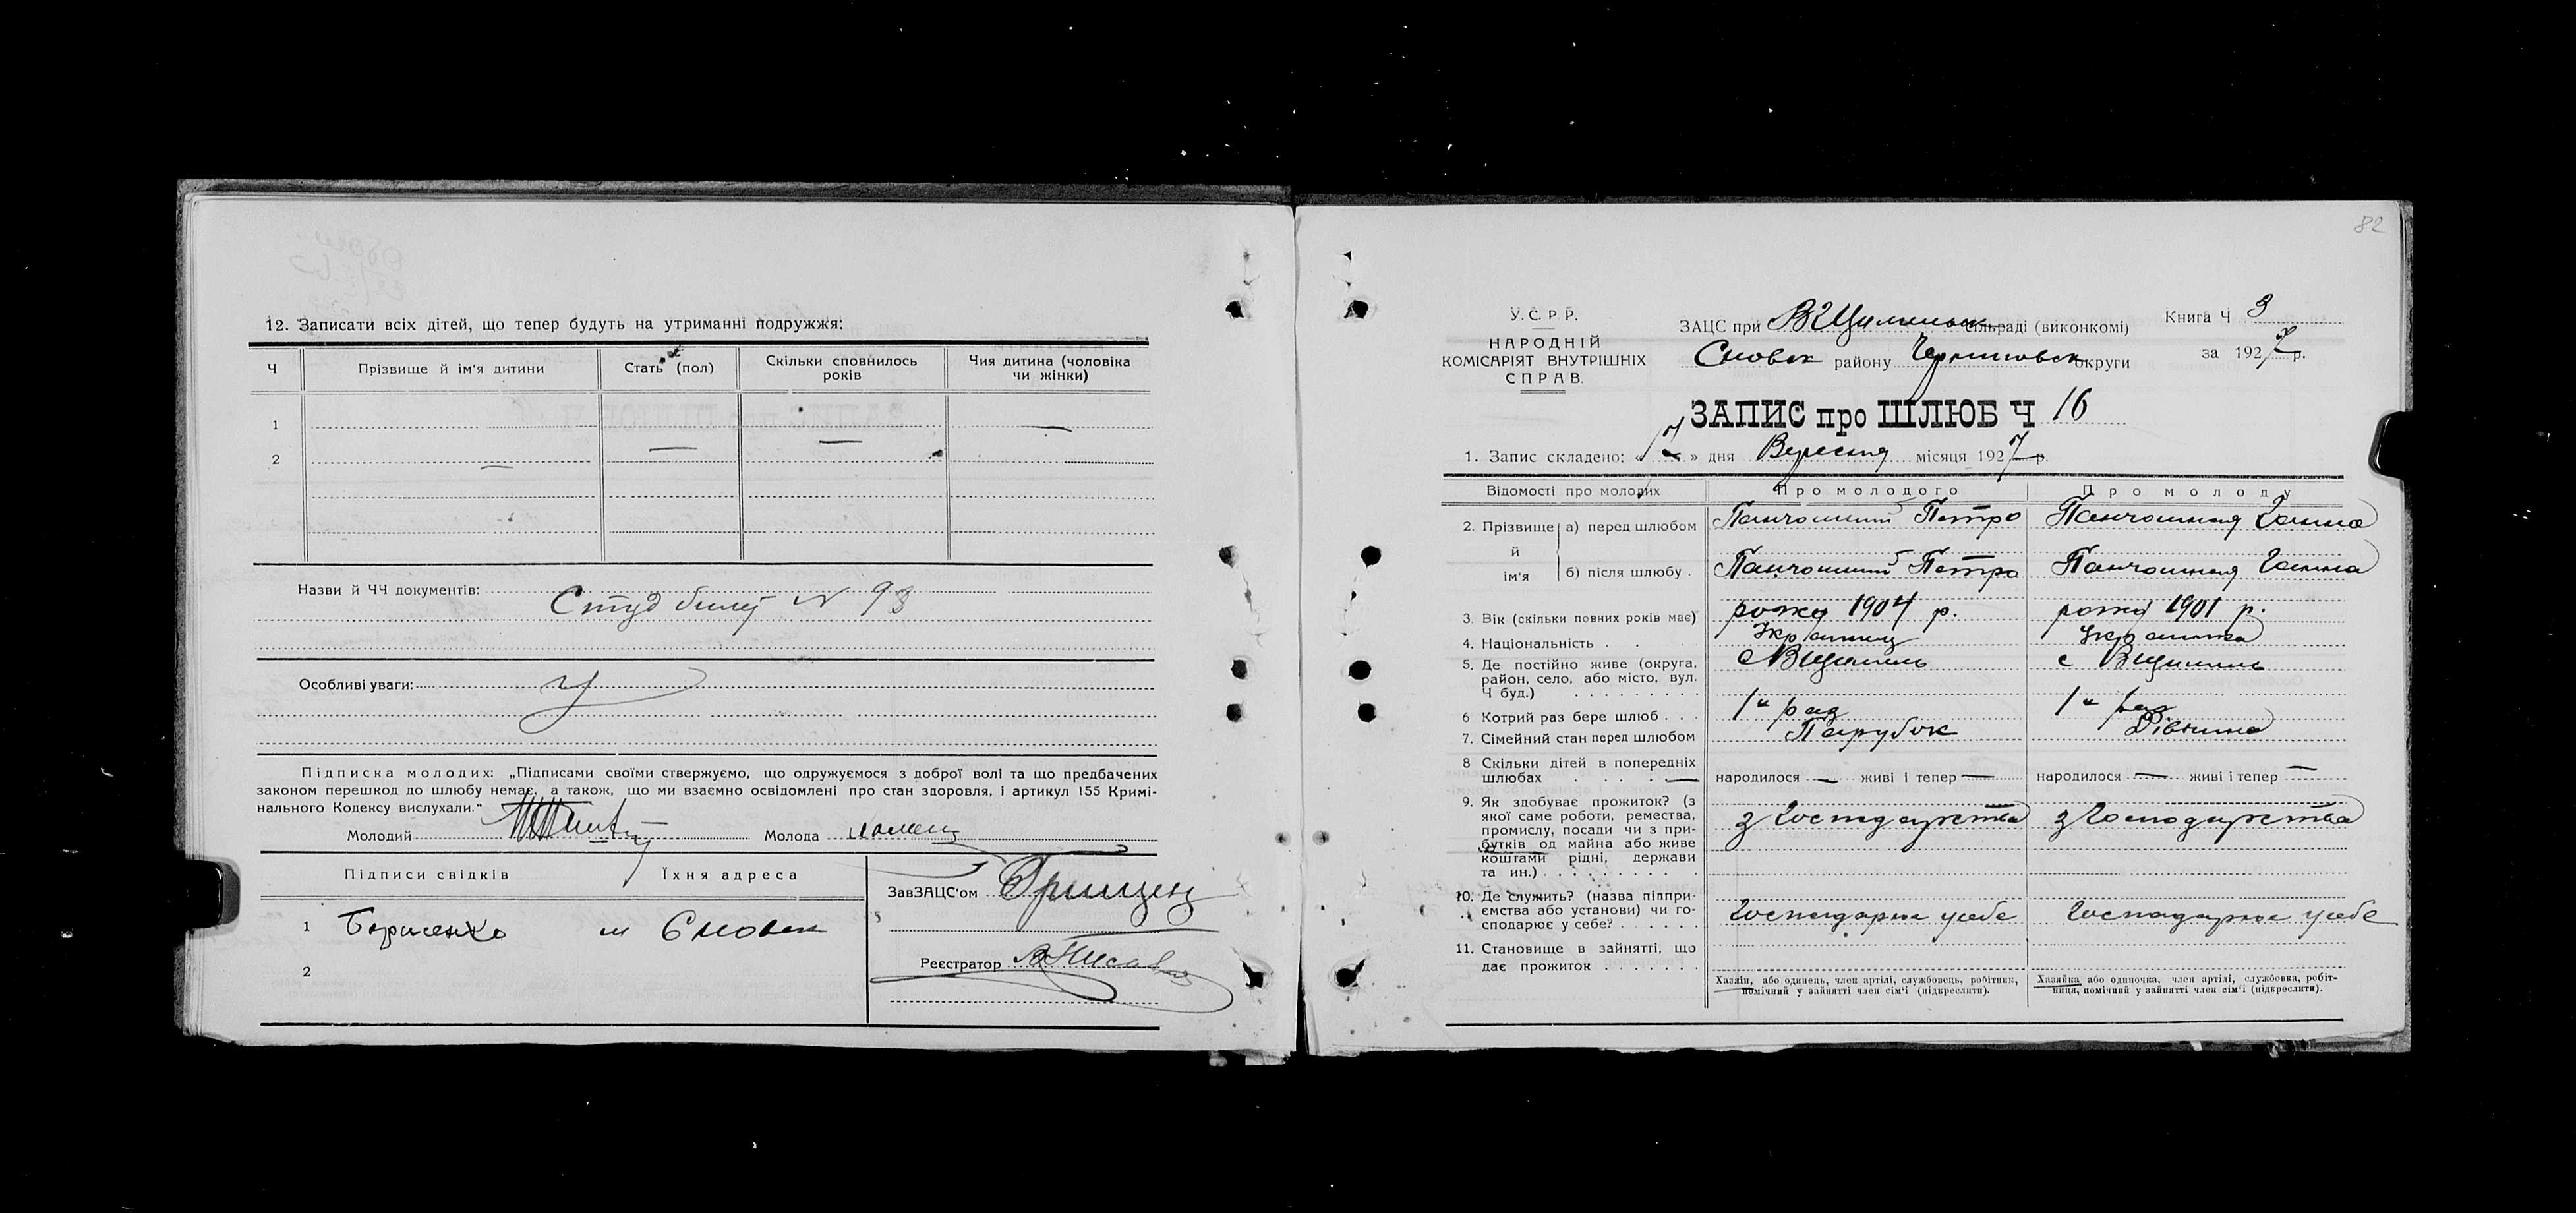 12. Записати всіх дітей, що тепер будуть на утриманні подружжя:
Ч
Прізвище й ім'я дитини
Стать (пол)
Скільки сповнилось
років
Чия дитина (чоловіка
чи жінки)
1
2
Назви й ЧЧ документів:
Студ билет N 93
Особливі уваги:
Підписка молодих: „Підписами своїми стверджуємо, що одружуємося з доброї волі та що предбачених
законом перешкод до шлюбу немає, а також, що ми взаємно освідомлені про стан здоровля, і артикул 155 Кримі-
нального Кодексу вислухали."
Молодий
Молода
Підписи свідків
Їхня адреса
1 Борисенко м Сновск
2
ЗавЗАЦС'ом
Реєстратор
82
У.С.Р.Р.
НАРОДНІЙ
КОМІСАРІЯТ ВНУТРІШНІХ
СПРАВ.
ЗАЦС при сільраді (виконкомі)
Сновск району Черниговск округи
Книга Ч 3
за 1927 р.
ЗАПИС про ШЛЮБ Ч 16
1. Запис складено: « » дня Вересня місяця 1927 р.
Відомості про молодих
Про молодого
Про молоду
2. Прізвище й ім'я
а) перед шлюбом
Петро
Ганна
б) після шлюбу
Петро
Ганна
3. Вік (скільки повних років має)
рожд 1904 р.
рожд 1901 р.
4. Національність
Українец
Українка
5. Де постійно живе (округа,
район, село, або місто, вул.
Ч буд.)
6 Котрий раз бере шлюб
1й раз
1й раз
7. Сімейний стан перед шлюбом
Парубок
Дівчина
8 Скільки дітей в попередніх
шлюбах
народилося — живі і тепер —
народилося — живі і тепер —
9. Як здобуває прожиток? (з
якої саме роботи, ремества,
промислу, посади чи з при-
бутків од майна або живе
коштами рідні, держави
та ин.)
з господарства
з господарства
10. Де служить? (назва підпри-
ємства або установи) чи го-
сподарює у себе?
господарює у себе
господарює у себе
11. Становище в зайнятті, що
дає прожиток
Хазяїн, або одинець, член артілі, службовець, робітник,
помічний у зайнятті член сім'ї (підкреслити).
Хазяйка або одиночка, член артілі, службовка, робіт-
ниця, помічний у зайнятті член сім'ї (підкреслити).